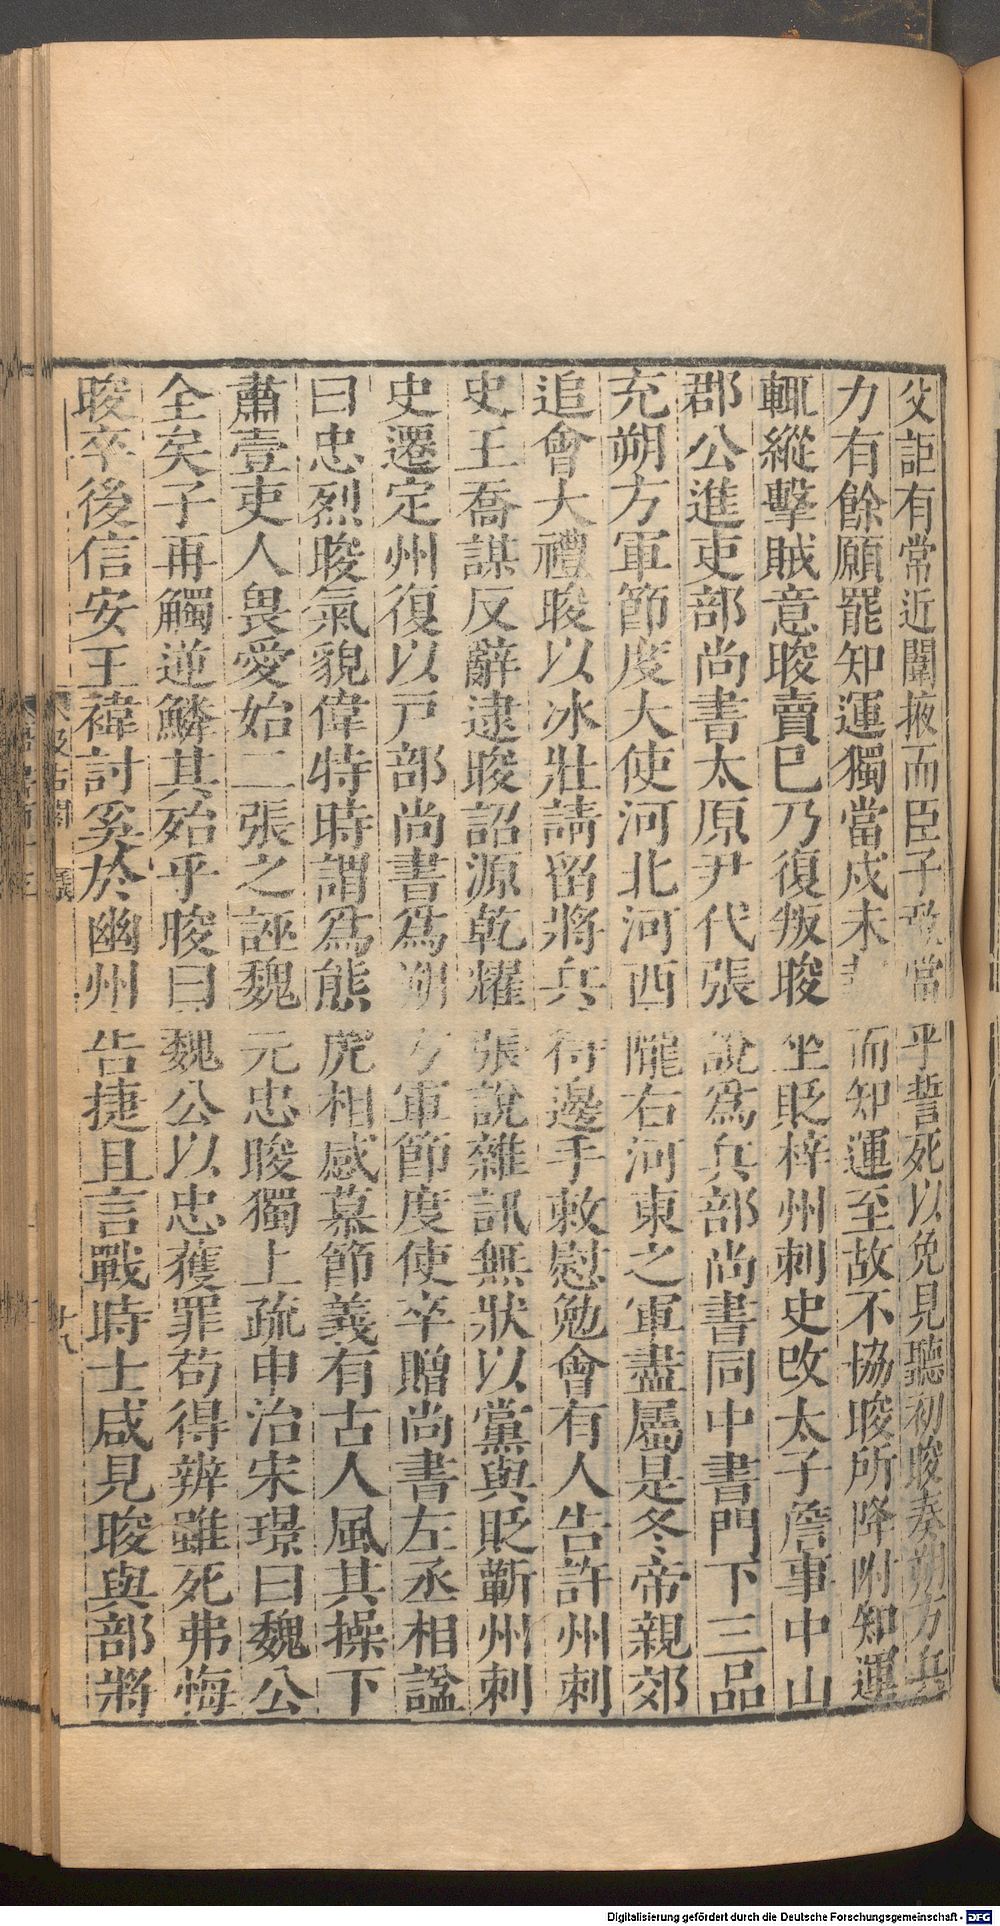 父詎有常近闈掖而臣子敢當乎誓死以免見聽初晙奏朔方兵
力有餘願罷知運獨當戍未而知運至故不協晙所降附知運
輒縱擊賊意晙賣已乃復叛晙坐貶梓州刺史改太子詹事中山
郡公進吏部尚書太原尹代張說爲兵部尚書同中書門下三品
充朔方軍節度大使河北河西隴右河東之軍盡屬是冬帝親郊
追會大禮晙以冰壯請留將兵待邊手敕慰勉會有人告許州刺
史王喬謀反辭逮晙詔源乾耀張說雜訊無狀以黨與貶蘄州刺
史遷定州復以戸部尚書爲朔方軍節度使卒贈尚書左丞相諡
曰忠烈晙氣貌偉特時謂爲熊虎相感慕節義有古人風其操下
肅壹吏人畏愛始二張之誣魏元忠晙獨上疏申治宋璟曰魏公
全矣子再觸逆鱗其殆乎晙曰魏公以忠獲罪苟得辨雖死弗悔
晙卒後信安王褘討奚於幽州告捷且言戰時士咸見晙與部將
汲古閣
十八
Digitalisierung gefördert durch die Deutsche Forschungsgemeinschaft - DFG